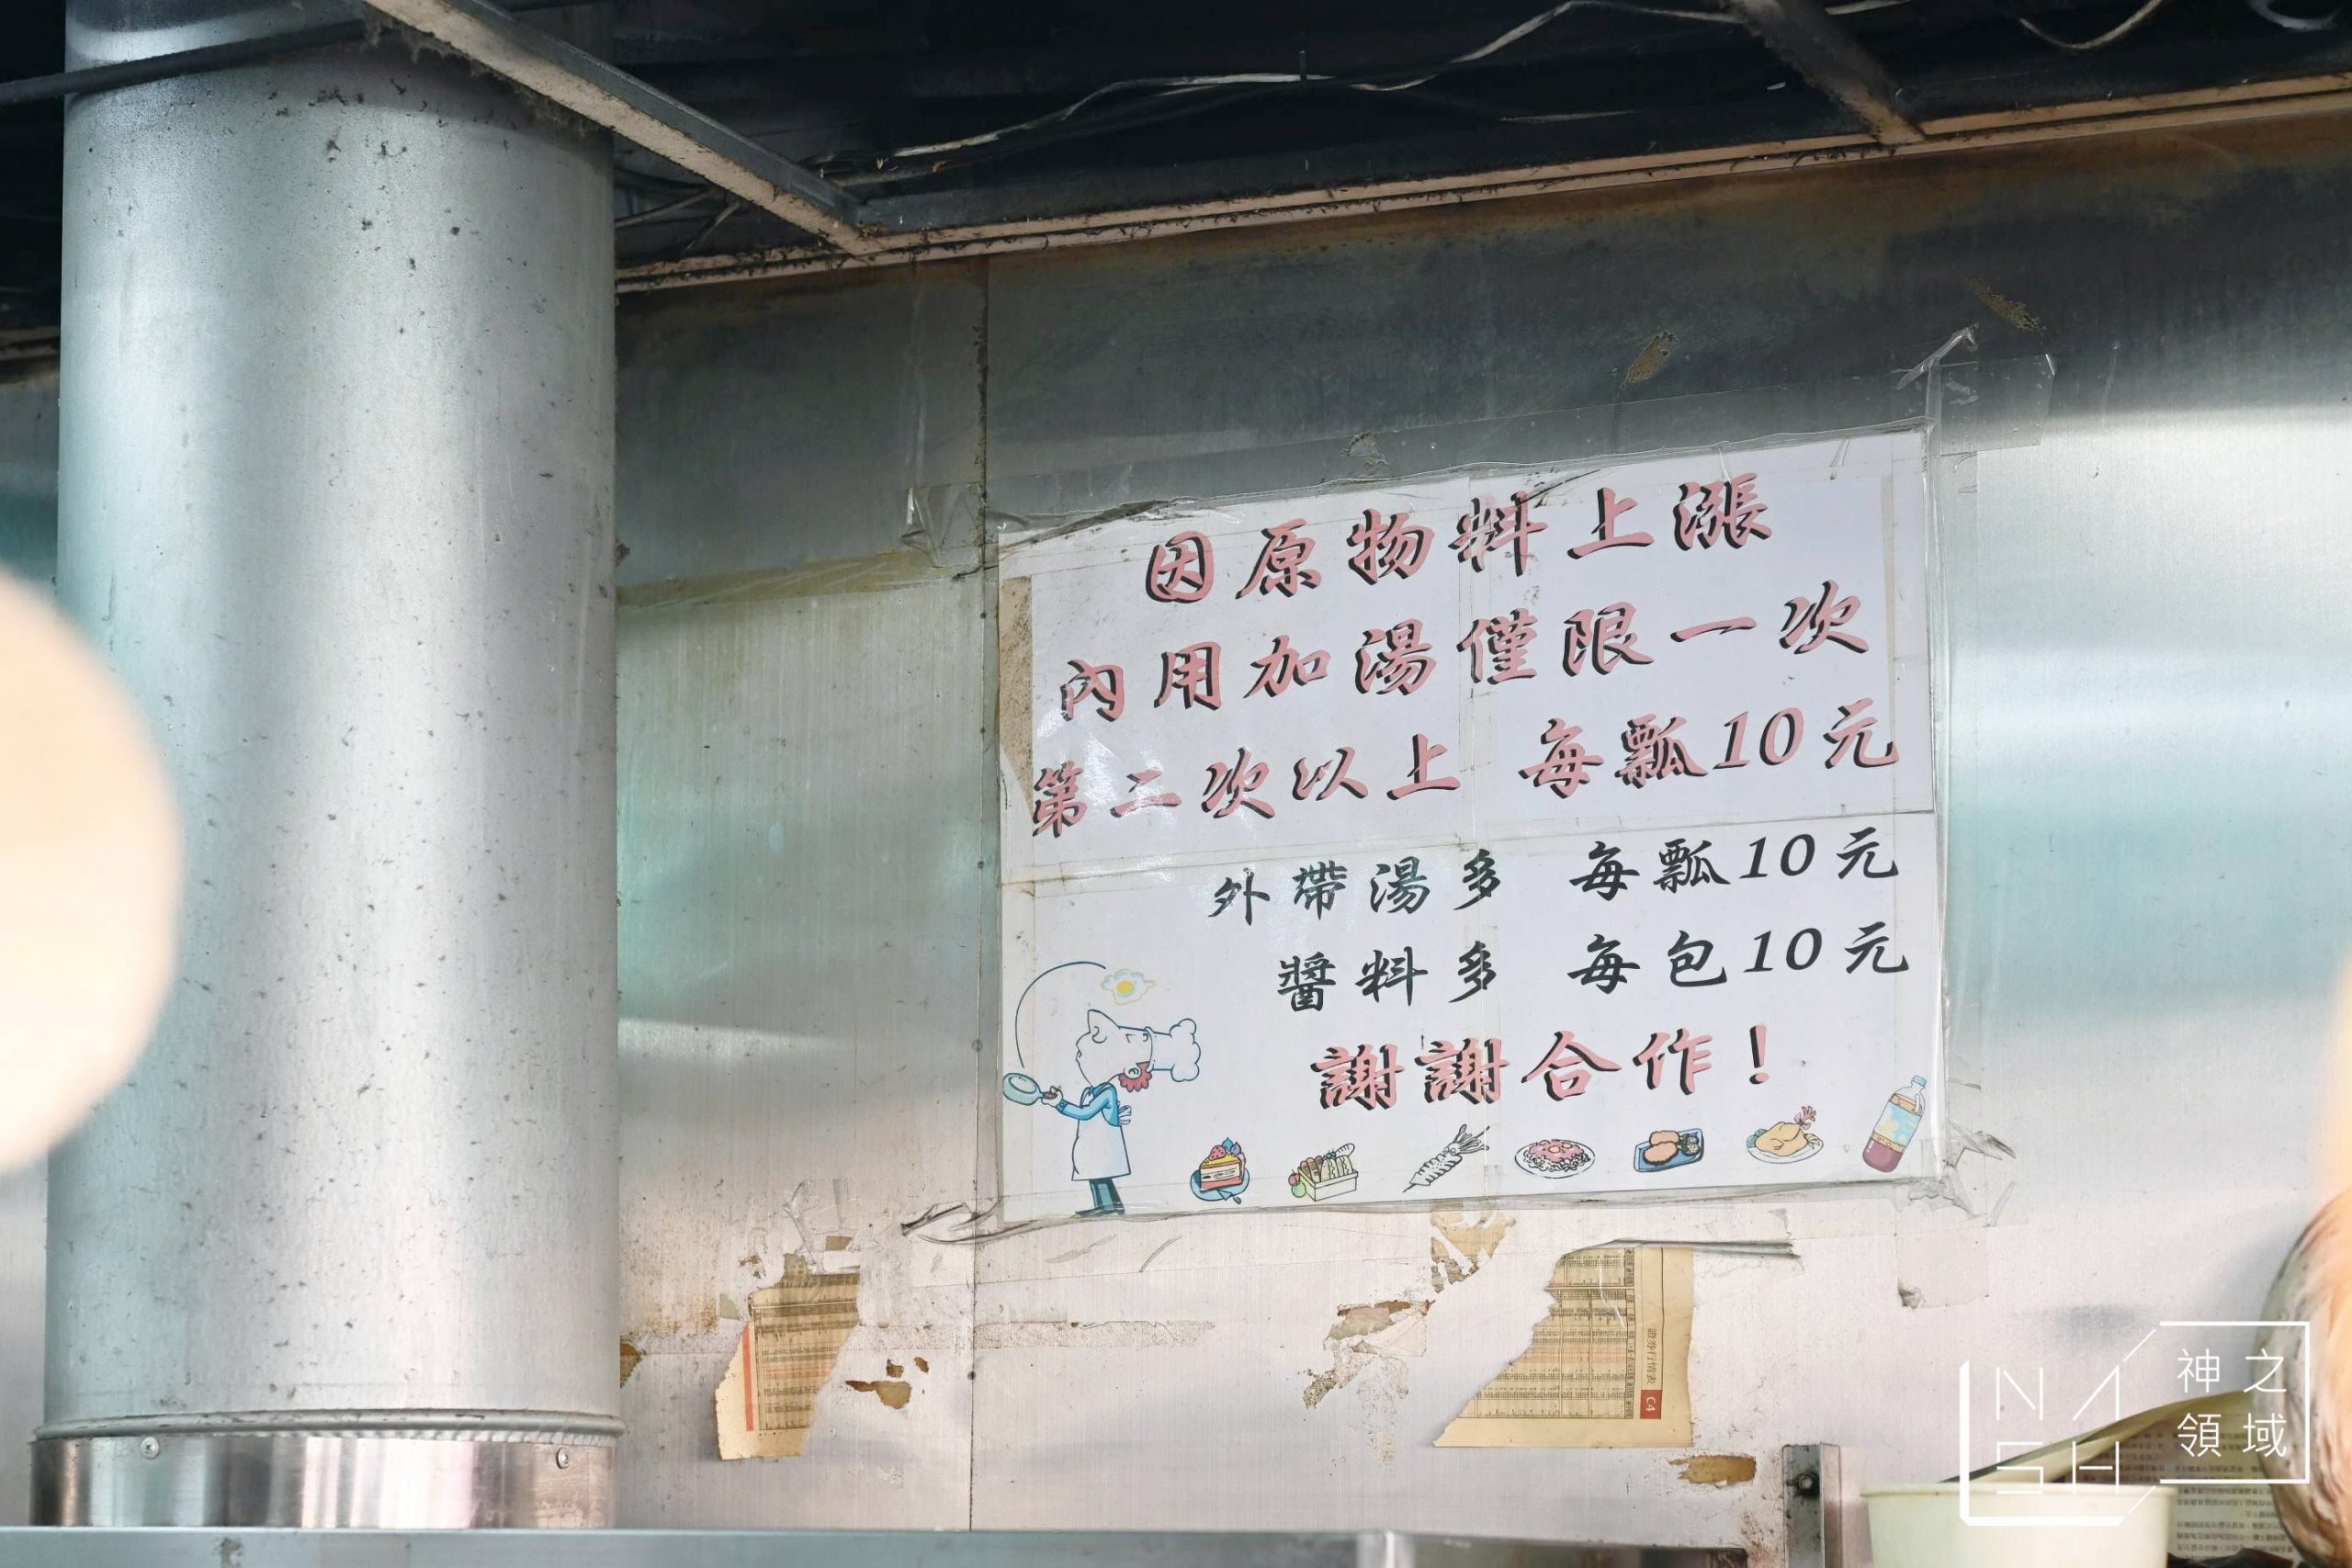 因原物料上漲
內用加湯僅限一次
第二次以上 每瓢10元
外帶湯多 每瓢10元
醬料多 每包10元
謝謝合作！
證券行情表 C4
NASH
神之
領域